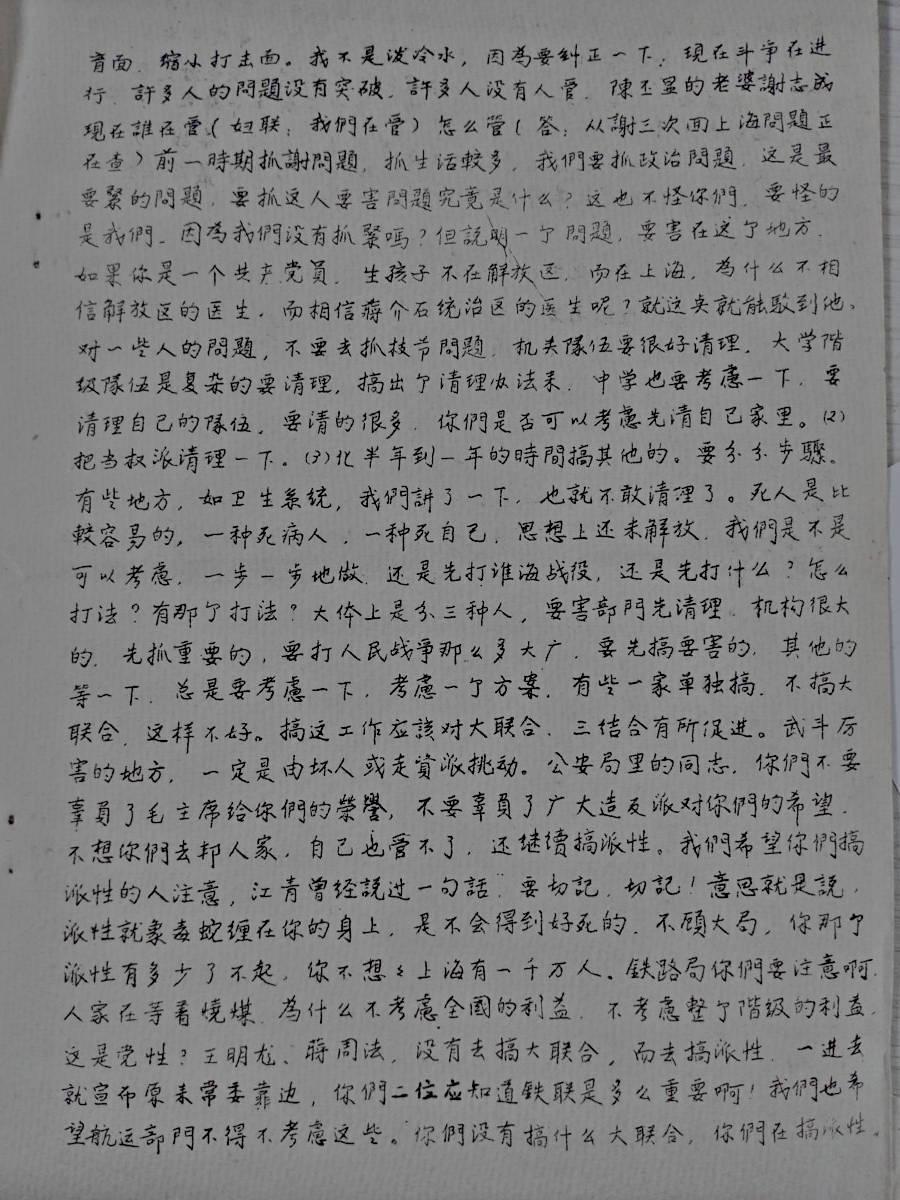 育面、缩小打击面。我不是泼冷水，因為要糾正一下，現在斗爭在进
行、許多人的問題没有突破、許多人没有人管、陳丕显的老婆謝志成
現在誰在管（妇联：我們在管）怎么管（答：从謝三次面上海問題正
在查）前一時期抓謝問題，抓生活較多，我們要抓政治問題，这是最
要緊的問題，要抓这人要害問題究竟是什么？这也不怪你們，要怪的
是我們。因為我們没有抓緊嗎？但說明一个問題，要害在这个地方、
如果你是一个共产党員，生孩子不在解放区，而在上海，為什么不相
信解放区的医生，而相信蔣介石统治区的医生呢？就这夹就能駁到他、
对一些人的問題，不要去抓枝节問題，机关隊伍要很好清理，大学階
級隊伍是复杂的要清理，搞出个清理办法来，中学也要考慮一下，要
清理自己的隊伍，要清的很多，你們是否可以考慮先清自己家里。(2)
把当权派清理一下。(3)化半年到一年的時間搞其他的。要分分步驟。
有些地方，如卫生系统，我們討了一下，也就不敢清理了。死人是比
較容易的，一种死病人，一种死自己，思想上还未解放，我們是不是
可以考慮，一步一步地做，还是先打淮海战役，还是先打什么？怎么
打法？有那个打法？大体上是分三种人，要害部門先清理，机构很大
的，先抓重要的，要打人民战爭那么多大广，要先搞要害的，其他的
等一下，总是要考慮一下，考慮一个方案，有些一家单独搞，不搞大
联合，这样不好。搞这工作应該对大联合、三结合有所促进。武斗厉
害的地方，一定是由坏人或走資派挑动。公安局里的同志，你們不要
辜負了毛主席给你們的榮譽，不要辜負了广大造反派对你們的希望，
不想你們去邦人家，自己也管不了，还继續搞派性。我們希望你們搞
派性的人注意，江青曾经說过一句話，要切記，切記！意思就是說，
派性就象毒蛇缠在你的身上，是不会得到好死的，不顾大局，你那个
派性有多少了不起，你不想々上海有一千万人。鉄路局你們要注意啊，
人家在等着燒煤，為什么不考慮全國的利益，不考慮整个階級的利益，
这是党性？王明尨、蔣周法，没有去搞大联合，而去搞派性，一进去
就宣布原来常委靠边，你們二位应知道鉄联是多么重要啊！我們也希
望航运部門不得不考慮这些。你們没有搞什么大联合，你們在搞派性。